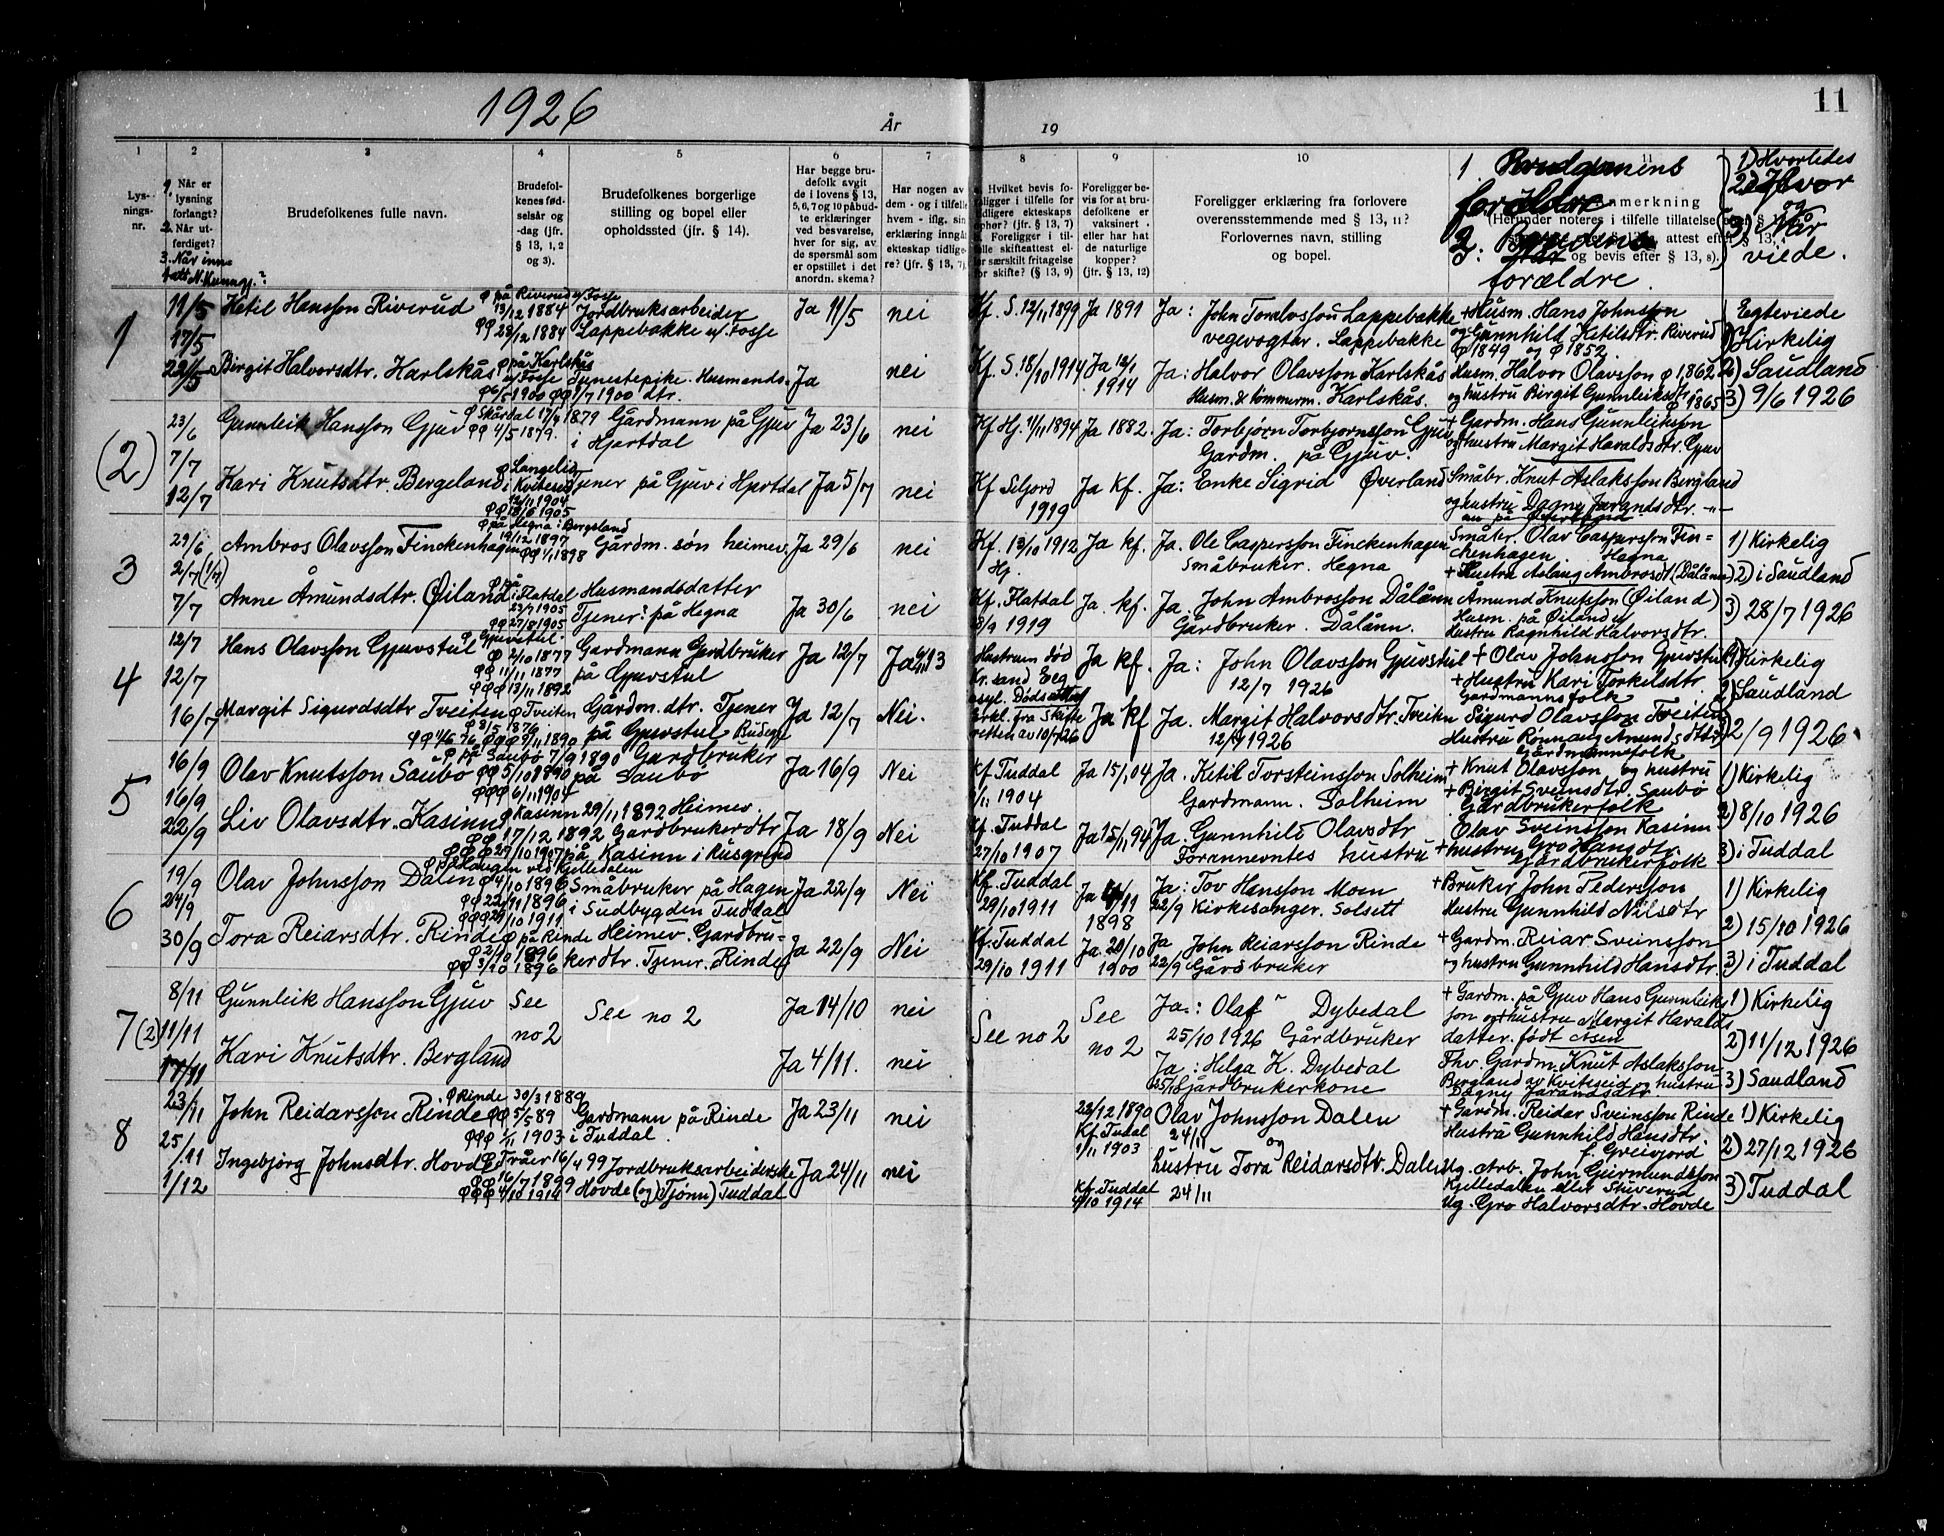 1926
År
19
11
1
2
3
4
5
6
7
8
9
10
11
Lys-
nings-
nr.
1. Når er
lysning
forlangt?
2. Når ut-
ferdiget?
3. Når inn-
Brudefolkenes fulle navn.
Brudefol-
kenes fød-
selsår og
-dag (jfr.
§ 13, 1, 2
og 3).
Brudefolkenes borgerlige
stilling og bopel eller
opholdssted (jfr. § 14).
Har begge bru-
defolk avgit
de i lovens § 13,
5, 6, 7 og 10 påbud-
te erklæringer
ved besvarelse,
hver for sig, av
de spørsmål som
er opstillet i det
anordn. skema?
Har nogen av
dem - og i tilfelle
hvem - iflg. sin
erklæring inngått
ekteskap tidlige-
re? (jfr. § 13, 7).
Hvilket bevis fo-
religger i tilfelle for
tidligere ekteskaps
ophør? (jfr. § 13, 7)
Foreligger i til-
felle skifteattest el-
ler særskilt fritagelse
for skifte? (§ 13, 9)
Foreligger be-
vis for at brude-
folkene er
vaksinert -
eller har hat
de naturlige
kopper?
(jfr. § 13, 12)
Foreligger erklæring fra forlovere
overensstemmende med § 13, 11?
Forlovernes navn, stilling
og bopel.
1. Brudgomens
forældre
2. Brudens
forældre.
1) Hvorledes
2) Hvor
og
3) Når
viede.
1
11/5
17/5
22/5
Ketil Hansson Riverud
φ på Riverud u/Fosse
13/12 1884
φφ 28/12 1884
Jordbruksarbeider
Lappebakke u/Fosse
Ja 11/5
nei
Kf. S. 12/11 1899
Ja 1891
Ja: John Torolvsson Lappebakke
vegevogter. Lappebakke
+ Husm. Hans Johnsson
og Gunnhild Ketilsdtr. Riverud
φ 1849 og φ 1852
Egteviede
Birgit Halvorsdtr. Karlskås
φ på Karlskås
u/Fosse
φ 6/5 1900 φφ 1/7 1900
Tjenestepike. Husmands-
dtr.
Ja
nei
Kf. S. 18/10 1914
Ja 12/1
1914
Ja: Halvor Olavsson Karlskås
Husm. & tømmerm. Karlskås.
Husm. Halvor Olavsson φ 1862
og hustru Birgit Gunnleiksdtr. φ 1865
1) Kirkelig
2) Saudland
3) 9/6 1926
(2)
23/6
7/7
12/7
Gunnleik Hansson Gjuv
φ Skårdal 17/4 1879
φφ 4/5 1879.
Gårdmann på Gjuv
i Hjartdal
Ja 23/6
nei
Kf Hj. 4/11 1894
Ja 1882.
Ja: Torbjørn Torbjørnsson Gjuv
Gardm. på Gjuv.
+ Gardm. Hans Gunnleiksson
og hustru Margit Haraldsdtr. Gjuv
Kari Knutsdtr. Bergeland
φ Langelid
i Kviteseid
12/11 1904
φφ 13/6 1905
Tjener på Gjuv i Hjartdal
Ja 5/7
nei
Kf Seljord
1919
Ja kf.
Ja: Enke Sigrid Øverland
Småbr. Knut Aslaksson Bergland
og hustru Dagny Jarandsdtr. -"-
3
29/6
2/7 (1/7)
7/7
Ambros Olavsson Finckenhagen
φ på Hegna i Bergsland
19/12 1897
φφ 1/1 1898
Gårdm. søn heimev.
Ja 29/6
nei
Kf. 13/10 1912
Hj.
Ja kf.
Ja. Ole Caspersson Finckenhagen
Småbruker. Hegna
Olav Caspersson Fin-
chenhagen Hegna
+ Hustru Aslaug Ambrosdt. (Dålånn)
1) Kirkelig
2) i Saudland
3) 28/7 1926
Anne Åmundsdtr. Øiland
φ på
i Flatdal
23/7 1905
φφ 27/8 1905
Husmandsdatter
Tjener: på Hegna
Ja 30/6
nei
Kf. Flatdal
8/9 1919
Ja. kf.
Ja. John Ambrosson Dålånn
Gårdbruker. Dålånn.
Åmund Knutsson (Øiland)
Husm. på Øiland u/
Hustru Ragnhild Halvorsdtr.
4
12/7
12/7
16/7
Hans Olavsson Gjuvstul
φ Gjuvstul.
φ 2/10 1877
φφ 11/11 1877
φφφ 13/11 1892
Gardmann Gardbruker
på Gjuvstul
Ja 12/7
Ja 6/11 13
Hustruen død
Kr. sand Eeg
asyl. Dødsattest
Erkl. fra Skifte
retten av 10/7 26
Ja kf.
Ja: John Olavsson Gjuvstul
12/7 1926
+ Olav Johnsson Gjuvstul
+ Hustru Kari Torkelsdtr.
Gardmannsfolk
1) Kirkelig
2) Saudland
Margit Sigurdsdtr Tveiten
φ Tveiten
3/5 1876
φφ 4/6 76 φφφ 9/11 1890
Gårdm. dtr. Tjener
på Gjuvstul Budeye
Ja 12/7
Nei.
Ja kf
Ja. Margit Halvorsdtr. Tveiten
12/7 1926
Sigurd Olavsson Tveiten
Hustru Rønnaug Amundsdtter
Gårdmannsfolk
3) 2/9 1926
5
16/9
16/9
22/9
Olav Knutsson Saubø
φ på Saubø 7/9 1890
φφ 5/10 1890
φφφ 6/11 1904
Gardbruker
på Saubø
Ja 16/9
Nei
Kf Tuddal
/11 1904
Ja 15/1 04
Ja. Ketil Torsteinsson Solheim
Gardmann. Solheim
+ Knut Olavsson og hustru
+ Birgit Sveinsdtr. Saubø
Gårdbrukerfolk
1) Kirkelig
2) 8/10 1926
3) i Tuddal
Liv Olavsdtr. Kasinn
φ Kasinn 29/11 1892
φφ 17/12 1892
φφφ 27/10 1907
Heimev.
Gardbrukerdtr
på Kasinn i Rusgrend
Ja 18/9
Nei
Kf. Tuddal
27/10 1907
Ja 15/11 94
Ja. Gunnhild Olavsdtr
Forannevntes hustru
Olav Sveinsson Kasinn
+ hustru Gro Hansdtr.
Gårdbrukerfolk
6
19/9
24/9
30/9
Olav Johnsson Dalen
φ på Haugen ved Kjelledalen
φ 4/10 1896
φφ 22/11 1896
φφφ 29/10 1911
Småbruker på Hagen
i Sudbygden Tuddal
Ja 22/9
Nei
Kf. Tuddal
29/10 1911
Ja 4/11
1898
Ja: Tov Hansson Moen
22/9 Kirkesanger. Solsett
+ Bruker John Pedersson
Hustru Gunnhild Nilsdtr
1) Kirkelig
2) 15/10 1926
3) i Tuddal
Tora Reiarsdtr. Rinde
φ på Rinde
φ 2/10 1896
φφ 3/10 1896
Heimev. Gardbru-
kerdtr. Tjener. Rinde
Ja 22/9
Nei
Kf. Tuddal
29/10 1911
Ja 20/10
1900
Ja John Reiarsson Rinde
22/9 Gårdbruker
+ Gardm. Reiar Sveinsson
og hustru Gunnhild Hansdtr.
7 (2)
8/11
11/11
17/11
Gunnleik Hansson Gjuv
See
no 2
See no 2
Ja 14/10
nei
See no 2
See
no 2
Ja: Olaf Dybedal
25/10 1926 Gårdbruker
+ Gardm. på Gjuv Hans Gunnleiks
son og hustru Margit Haralds
datter. født Åsen
1) Kirkelig
2) 11/12 1926
3) Saudland
Kari Knutsdtr. Bergland
Ja 4/11.
nei
Ja: Helga K. Dybedal
25/10 gårdbrukerkone
Fhv. Gardm. Knut Aslaksson
Bergland av Kviteseid og hustru
Dagny Jarandsdtr.
8
23/11
25/11
1/12
John Reidarsson Rinde
φ Rinde 30/3 1889
φφ 5/5 89
φφφ 1/11 1903
Gardmann på Rinde
i Tuddal.
Ja 23/11
nei
28/12 1890
Kf. Tudal
1/11 1903
Olav Johnsson Dalen
24/11 og
+ Gardm. Reider Sveinsson Rinde
Hustru Gunnhild Hansdtr.
f. Greivjord
1) Kirkelig
2) 27/12 1926
3) Tuddal
Ingebjørg Johnsdtr. Hovde
φ Tråer 16/4 99
φφ 16/7 1899
φφφ 4/10 1914
Jordbruksarbeiderske
Hovde (og Tjønn) Tuddal
Ja 24/11
nei
Kf. Tuddal
4/10 1914
hustru Tora Reidarsdtr. Dalen
24/11
Ug. Arb. John Guromundsson
Kjelledalen eller Skiverud
Ug. Gro Halvorsdtr. Hovde